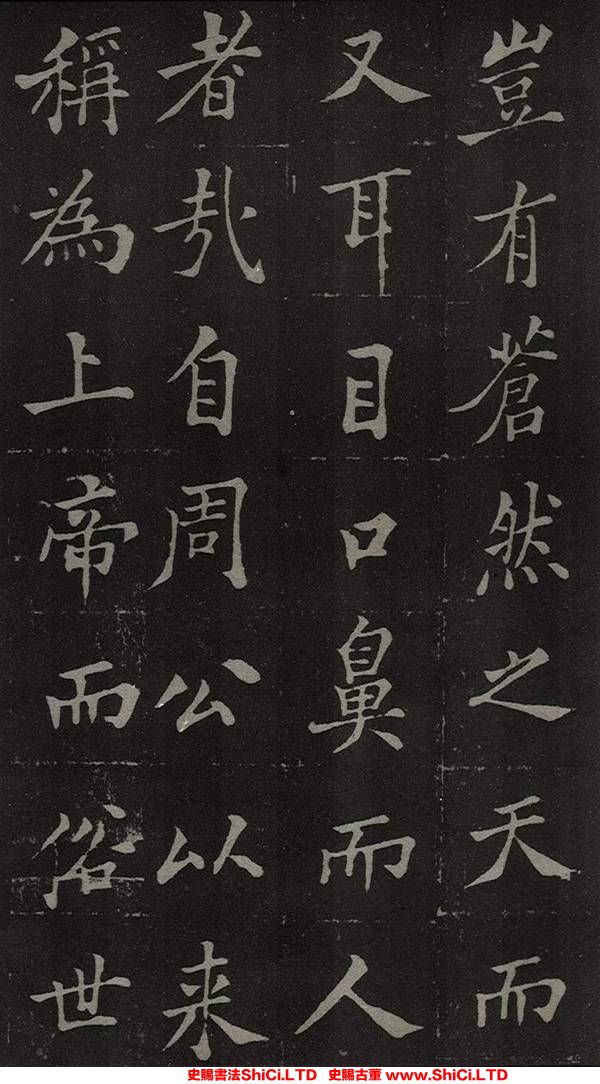 豈有蒼然之天而
又耳目口鼻而人
者哉自周公以来
稱為上帝而俗世
史賜書法ShiCi.LTD 史賜古董 www.ShiCi.LTD